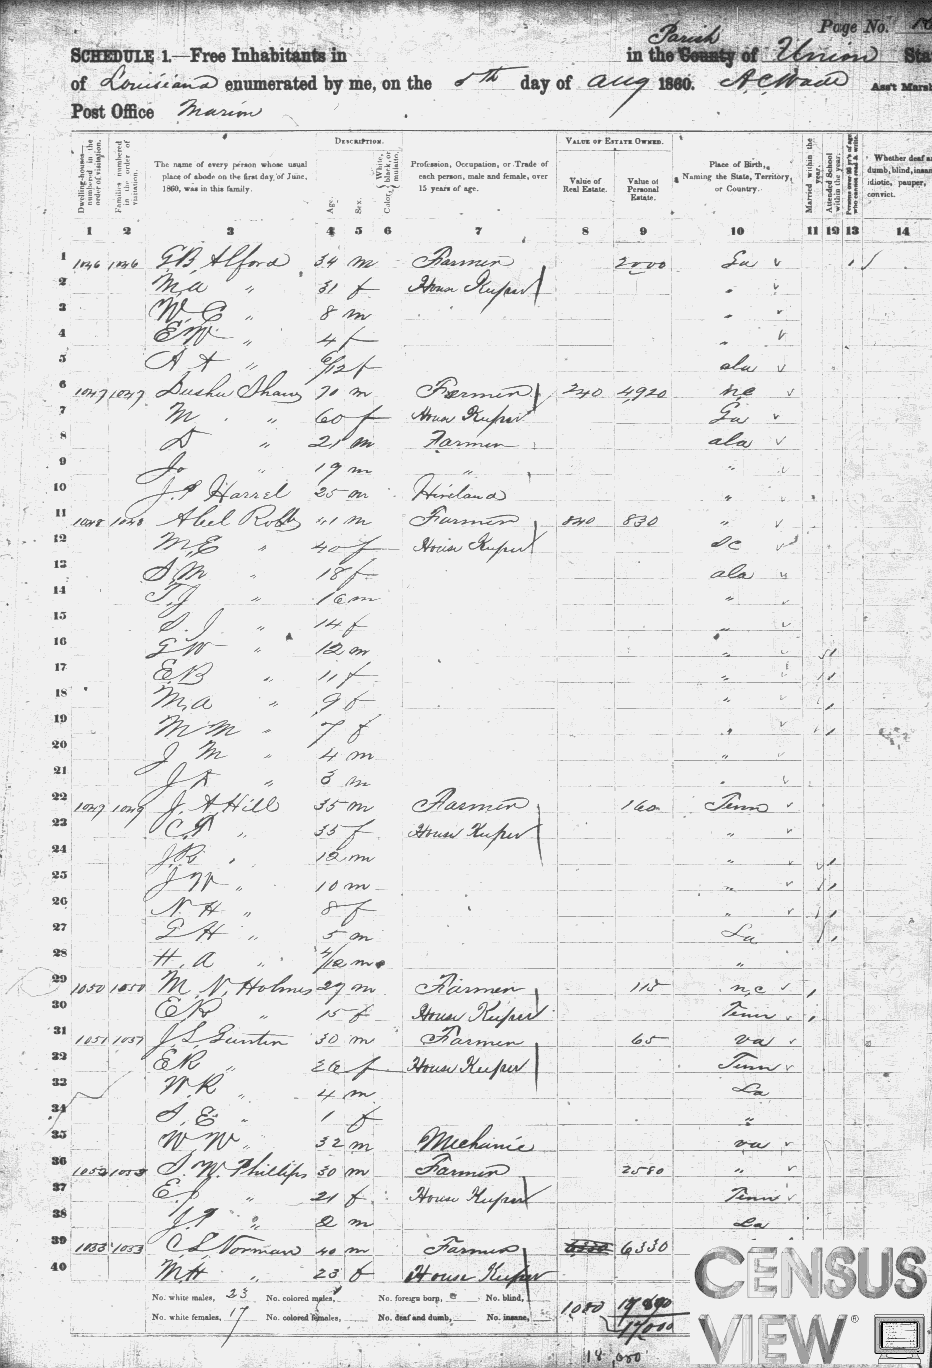 Page No.
SCHEDULE 1.—Free Inhabitants in in the County of Parish Union
of Louisiana enumerated by me, on the 8th day of Aug 1860. A C Wade Ass't Marsh
Post Office Marion
DESCRIPTION. VALUE OF ESTATE OWNED.
Dwelling-houses—numbered in the order of visitation. Families numbered in the order of visitation. The name of every person whose usual place of abode on the first day of June, 1860, was in this family. Age. Sex. Color, {White, black, or mulatto. Profession, Occupation, or Trade of each person, male and female, over 15 years of age. Value of Real Estate. Value of Personal Estate. Place of Birth, Naming the State, Territory, or Country. Married within the year. Attended School within the year. Persons over 20 y'rs of age who cannot read & write. Whether deaf a dumb, blind, insan idiotic, pauper, convict.
1 2 3 4 5 6 7 8 9 10 11 12 13 14
1 1046 1046 G.B. Alford 34 m Farmer 2000 Ga
2 M A " 31 f House Keeper "
3 W. C " 8 m "
4 E W " 4 f "
5 A. A " 6/12 f ala
6 1047 1047 Shaw 70 m Farmer 240 4920 N C
7 M " 60 f House Keeper Ga
8 D " 21 m Farmer ala
9 Jo " 19 m " "
10 J. P Harrel 25 m "
11 1048 1048 Abel Robb 41 m Farmer 840 830 "
12 M. E " 40 f House Keeper S C
13 S. M " 18 f ala
14 T. J " 16 m "
15 S. J " 14 f "
16 G W " 12 m " 1
17 E. B " 11 f " 1
18 M. A " 9 f " 1
19 M M " 7 f " 1
20 J M " 4 m "
21 J A " 3 m "
22 1049 1049 J. A Hill 35 m Farmer 160 Tenn
23 C. P " 35 f House Keeper "
24 J. R " 12 m " 1
25 J W " 10 m " 1
26 N. H " 8 f " 1
27 G H " 5 m La 1
28 H. A " /12 m "
29 1050 1050 M. N. Holmes 29 m Farmer 115 N C 1
30 E R " 15 f House Keeper Tenn 1
31 1051 1051 J. L. Guntin 30 m Farmer 65 Va
32 E R " 26 f House Keeper Tenn
33 W. R " 4 m La
34 S. E " 1 f "
35 W W " 32 m Mechanic Va
36 1052 1052 S. W. Phillips 30 m Farmer 2580 "
37 E. J " 21 f House Keeper Tenn
38 J. P " 2 m La
39 1053 1053 C L Norman 40 m Farmer 6330 6330
40 M H " 23 f House Keeper
No. white males, 23 No. colored males, No. foreign born, No. blind, 1080
No. white females, 17 No. colored females, No. deaf and dumb, No. insane, 17,000
18,080
CENSUS
VIEW®